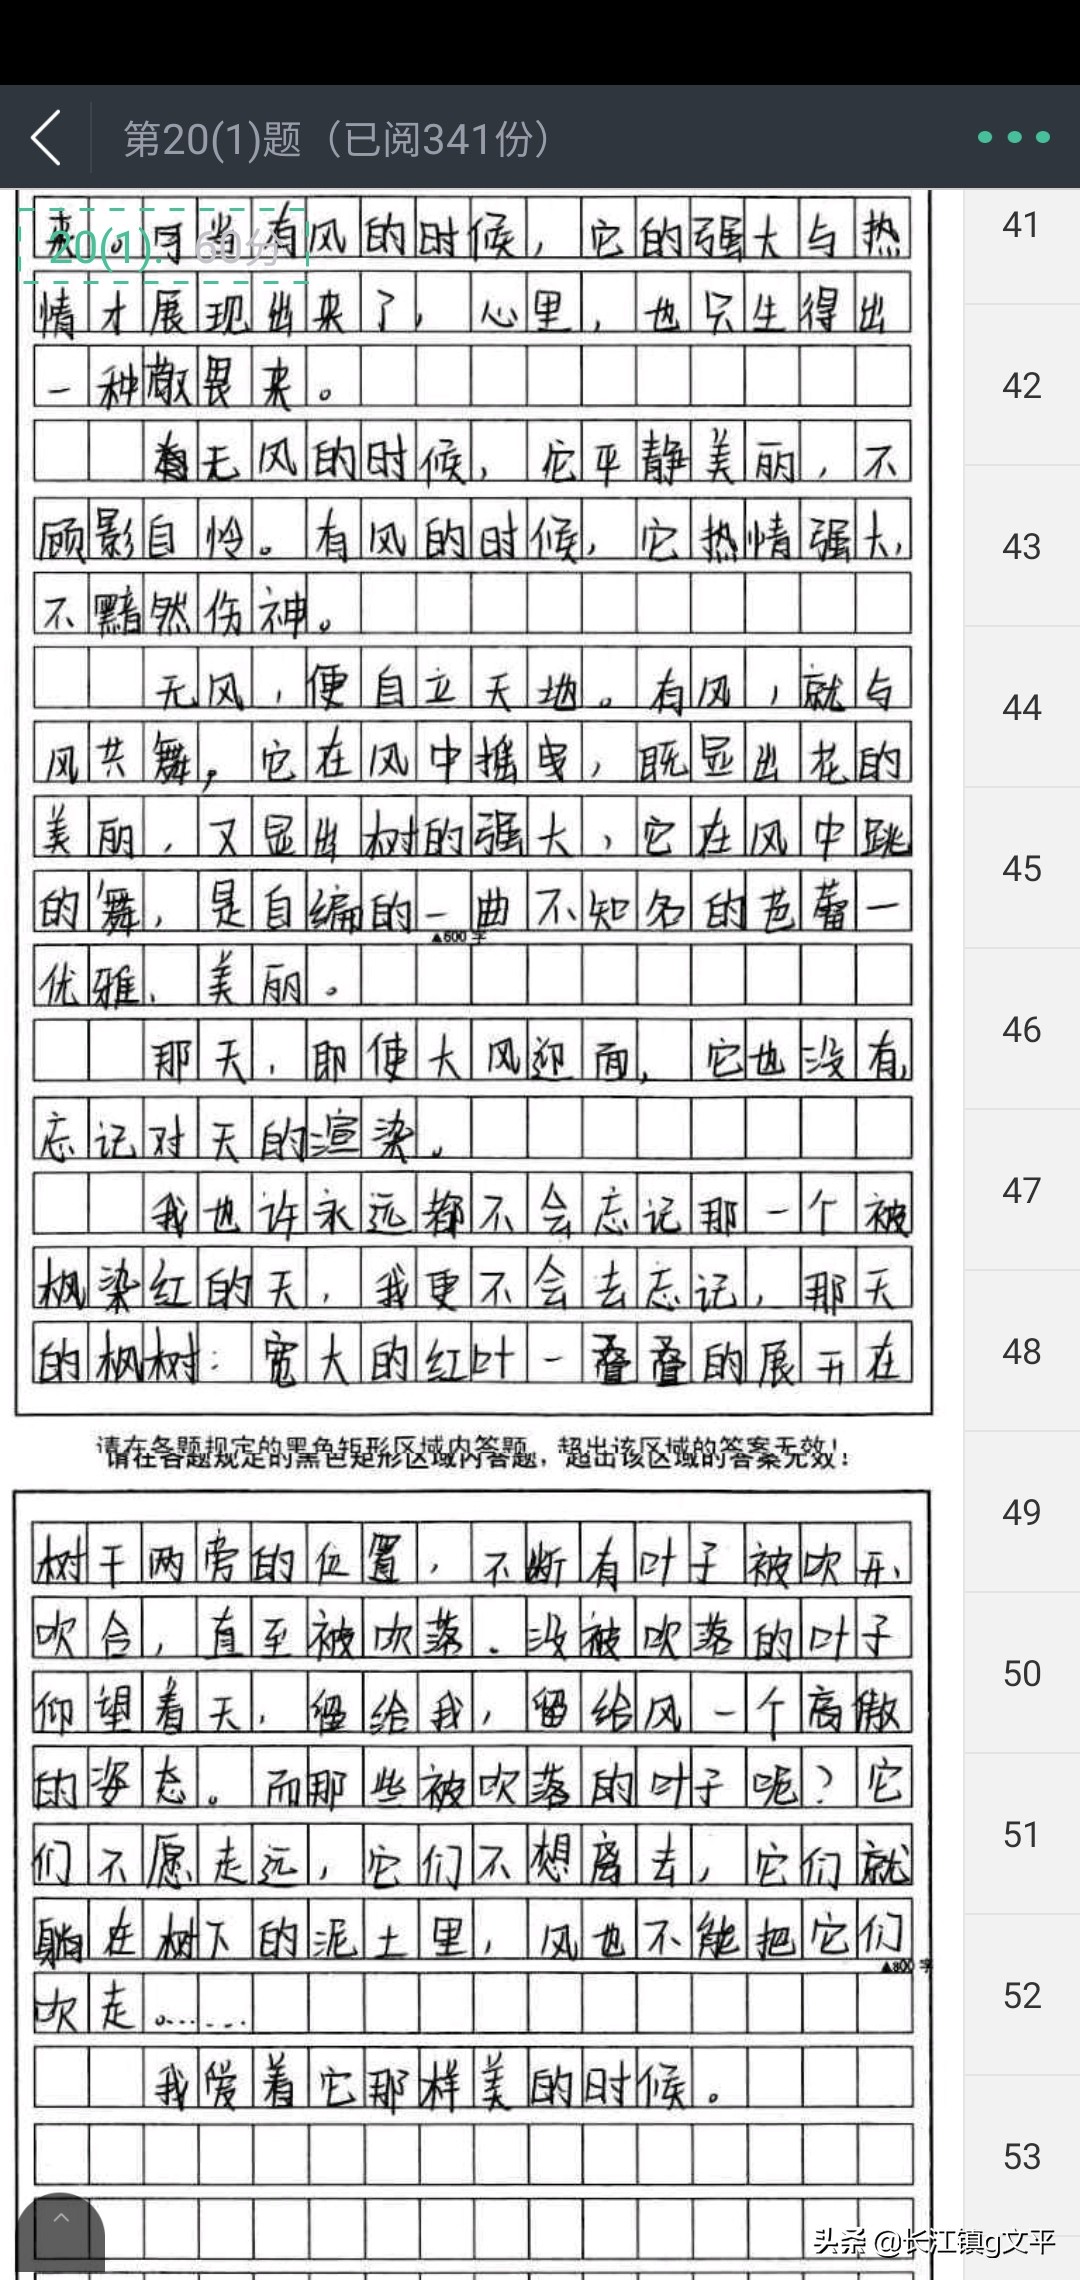 第20(1)题（已阅341份）
20(1). 60分
来。可当有风的时候，它的强大与热
情才展现出来了，心里，也只生得出
一种敬畏来。
无风的时候，它平静美丽，不
顾影自怜。有风的时候，它热情强大，
不黯然伤神。
无风，便自立天地。有风，就与
风共舞，它在风中摇曳，既显出花的
美丽，又显出树的强大，它在风中跳
的舞，是自编的一曲不知名的芭蕾一
▲600字
优雅、美丽。
那天，即使大风迎面，它也没有
忘记对天的渲染。
我也许永远都不会忘记那一个被
枫染红的天，我更不会去忘记，那天
的枫树：宽大的红叶一叠叠的展开在
请在各题规定的黑色矩形区域内答题，超出该区域的答案无效！
请在各题规定的黑色矩形区域内答题，超出该区域的答案无效！
树干两旁的位置，不断有叶子被吹开、
吹合，直至被吹落．没被吹落的叶子
仰望着天，留给我，留给风一个高傲
的姿态。而那些被吹落的叶子呢？它
们不愿走远，它们不想离去，它们就
躺在树下的泥土里，风也不能把它们
▲800字
吹走。……
我爱着它那样美的时候。
41
42
43
44
45
46
47
48
49
50
51
52
53
头条 @长江镇g文平